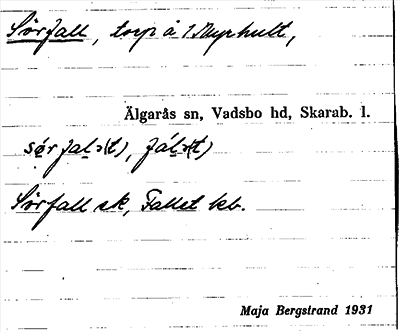 Sörfall, torp å 1 Myrhult,
Älgarås sn, Vadsbo hd, Skarab. l.
sø̀r fal ə(t), fál ə(t)
Sörfall ek, Fallet kb.
Maja Bergstrand 1931